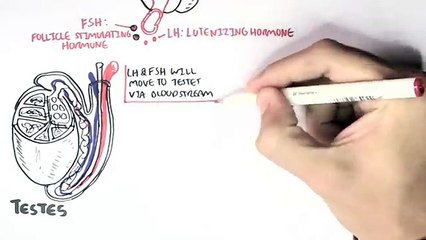 FSH:
FOLLICLE STIMULATING
HORMONE
LH: LUTENIZING HORMONE
LH & FSH WILL
MOVE TO TESTET
VIA BLOODSTREAM
TESTES